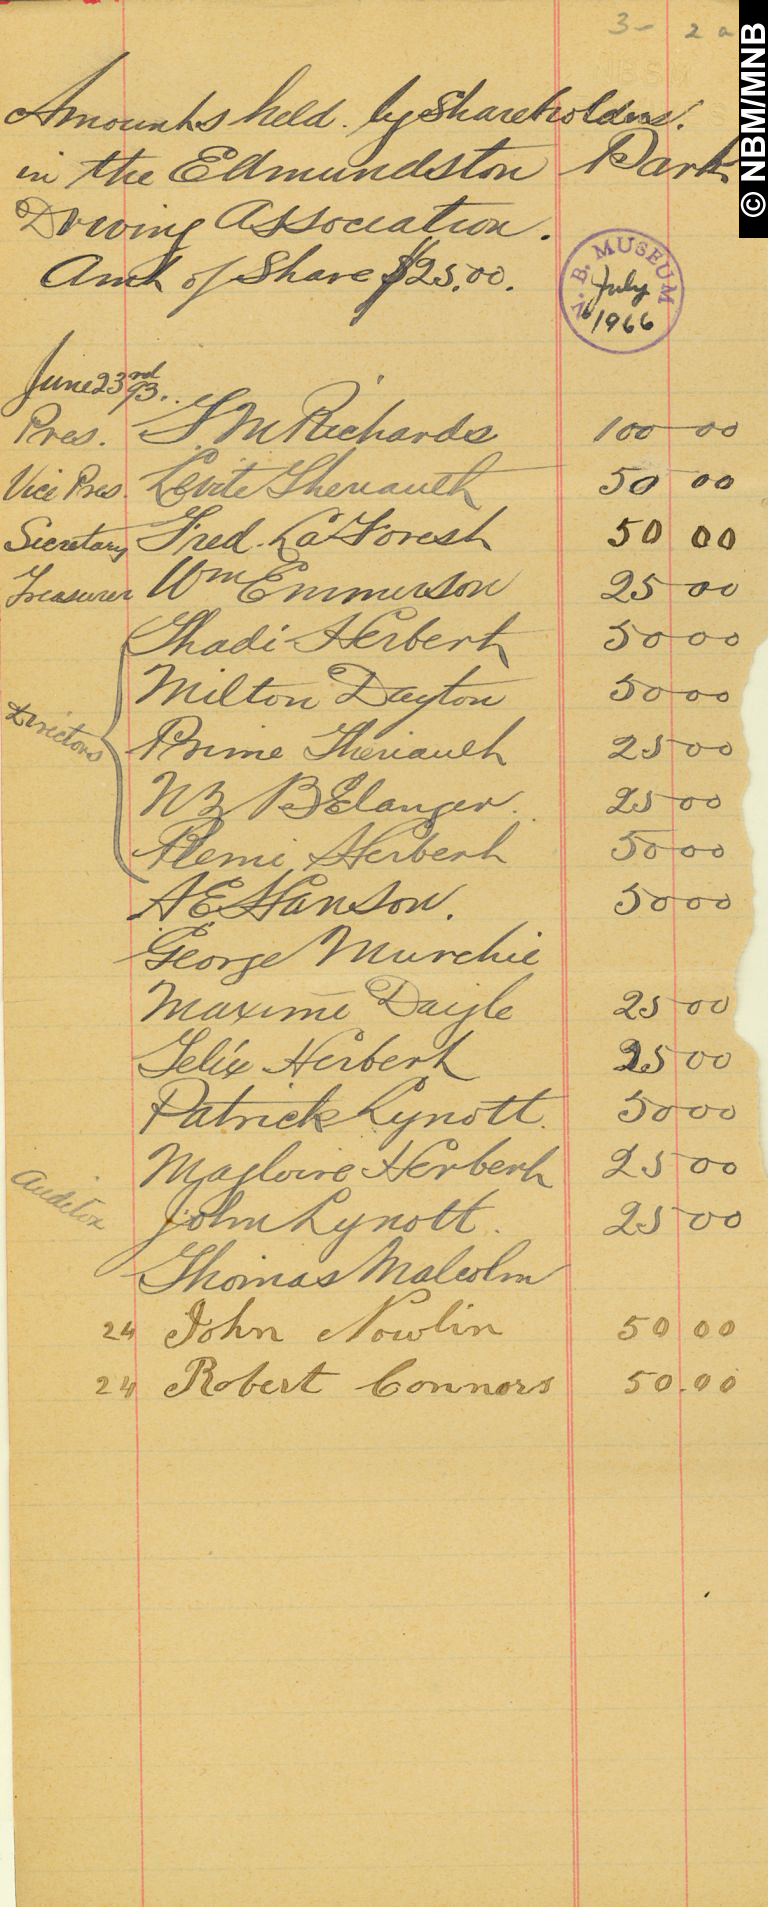 3- 2a
© NBM/MNB
Amounts held by Shareholders.
in the Edmundston Park
Driving Association.
Amt of Share $25.00.
N.B. MUSEUM
July
1966
June 23rd 93.
Pres. T M Richards 100 00
Vice Pres. Levite Theriault 50 00
Secretary Fred. LaForest 50 00
Treasurer Wm Emmerson 25 00
Directors
Thadi Herbert 50 00
Milton Dayton 50 00
Prime Theriault 25 00
BElanger. 25 00
Remi Herbert 50 00
A E Hanson. 50 00
George Murchie
Maxime Daigle 25 00
Felix Herbert 25 00
Patrick Lynott. 50 00
Magloire Herbert 25 00
Auditor John Lynott. 25 00
Thomas Malcolm
24 John Nowlin 50 00
24 Robert Connors 50.00